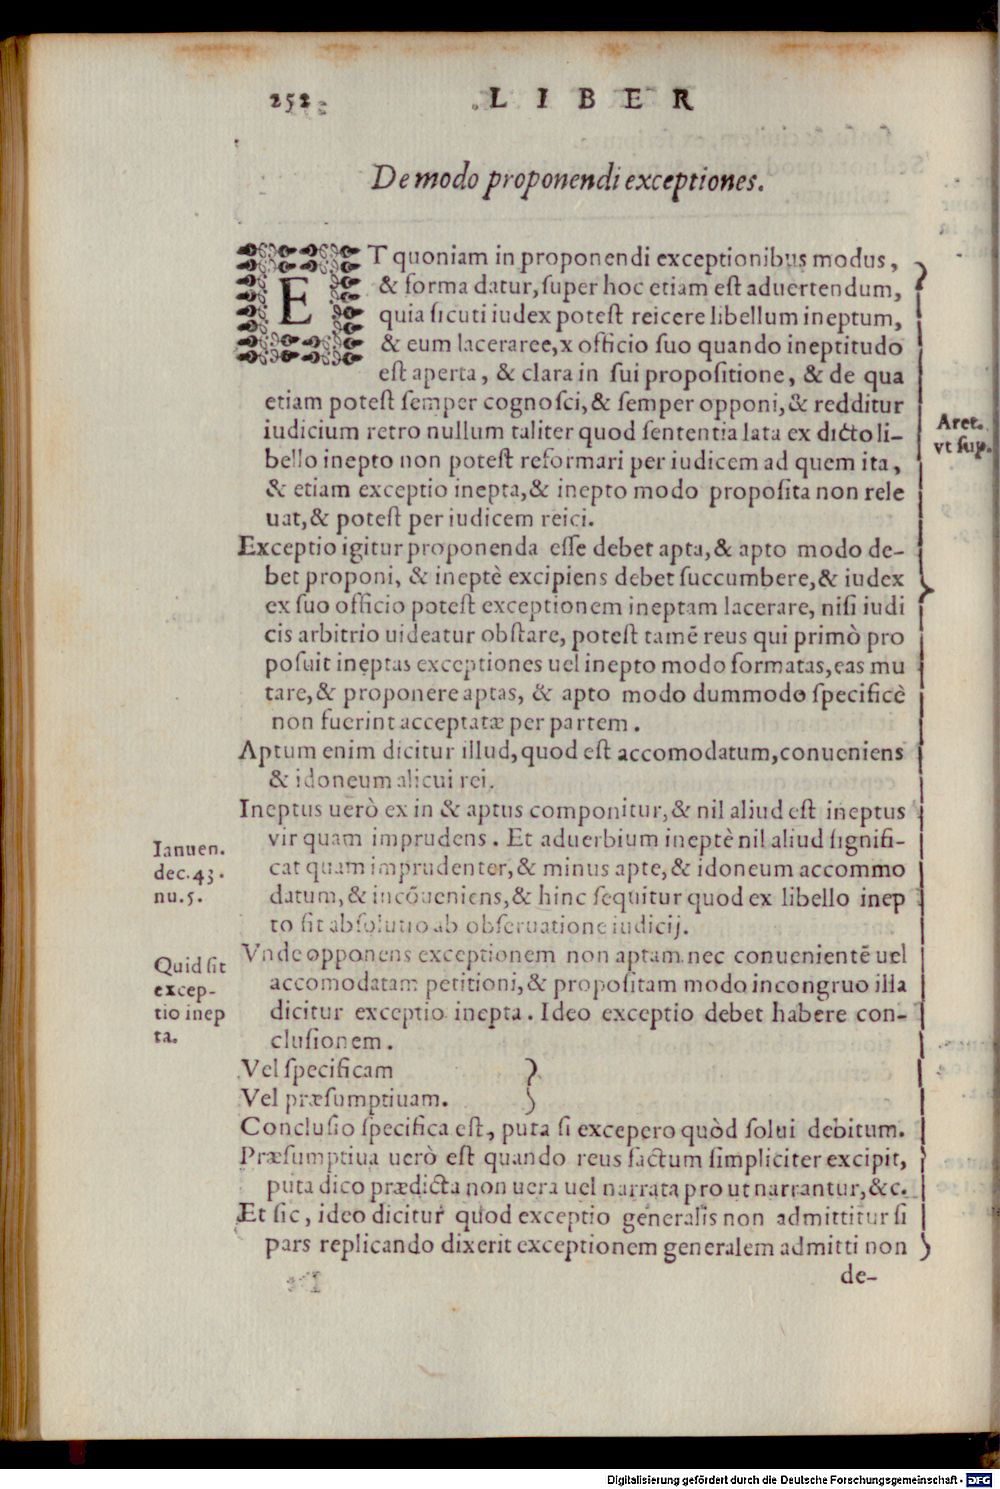 252
LIBER
De modo proponendi exceptiones.
ET quoniam in proponendi exceptionibus modus,
& forma datur, super hoc etiam est aduertendum,
quia sicuti iudex potest reicere libellum ineptum,
& eum laceraree,x officio suo quando ineptitudo
est aperta, & clara in sui propositione, & de qua
etiam potest semper cognosci, & semper opponi, & redditur
iudicium retro nullum taliter quod sententia lata ex dicto li-
bello inepto non potest reformari per iudicem ad quem ita,
& etiam exceptio inepta, & inepto modo proposita non rele
uat, & potest per iudicem reici.
Aret.
vt sup.
Exceptio igitur proponenda esse debet apta, & apto modo de-
bet proponi, & ineptè excipiens debet succumbere, & iudex
ex suo officio potest exceptionem ineptam lacerare, nisi iudi
cis arbitrio uideatur obstare, potest tamē reus qui primò pro
posuit ineptas exceptiones uel inepto modo formatas, eas mu
tare, & proponere aptas, & apto modo dummodo specificè
non fuerint acceptatæ per partem.
Aptum enim dicitur illud, quod est accomodatum, conueniens
& idoneum alicui rei.
Ineptus uerò ex in & aptus componitur, & nil aliud est ineptus
vir quam imprudens. Et aduerbium ineptè nil aliud signifi-
cat quam imprudenter, & minus apte, & idoneum accommo
datum, & incōueniens, & hinc sequitur quod ex libello inep
to sit absolutio ab obseruatione iudicij.
Ianuen.
dec. 43.
nu. 5.
Vnde opponens exceptionem non aptam nec conuenientē uel
accomodatam petitioni, & propositam modo incongruo illa
dicitur exceptio inepta. Ideo exceptio debet habere con-
clusionem.
Quid sit
excep-
tio inep
ta.
Vel specificam
Vel præsumptiuam.
Conclusio specifica est, puta si excepero quòd solui debitum.
Præsumptiua uerò est quando reus factum simpliciter excipit,
puta dico prædicta non uera uel narrata pro ut narrantur, &c.
Et sic, ideo dicitur quod exceptio generalis non admittitur si
pars replicando dixerit exceptionem generalem admitti non
de-
Digitalisierung gefördert durch die Deutsche Forschungsgemeinschaft - DFG